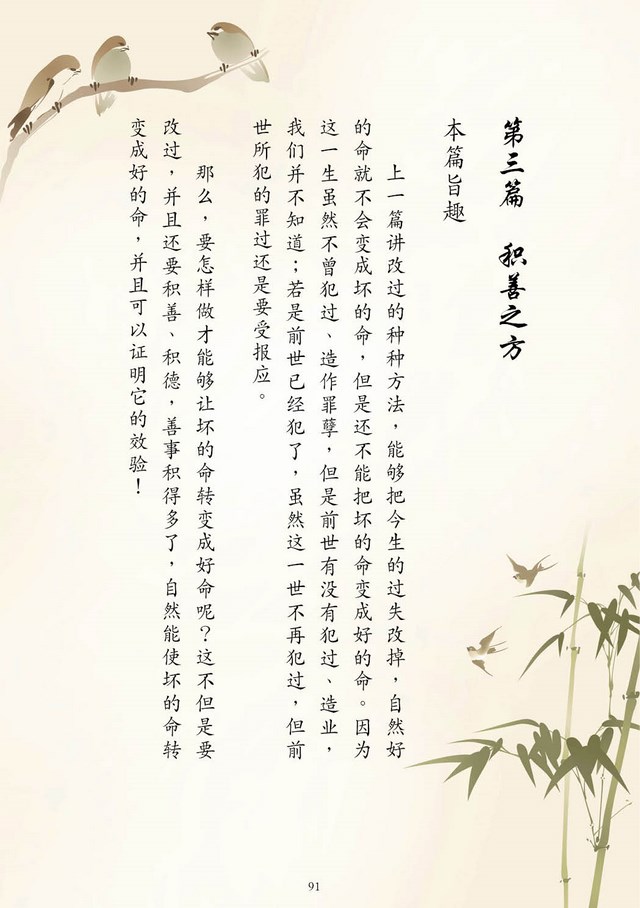 第三篇　积善之方
本篇旨趣
上一篇讲改过的种种方法，能够把今生的过失改掉，自然好
的命就不会变成坏的命，但是还不能把坏的命变成好的命。因为
这一生虽然不曾犯过、造作罪孽，但是前世有没有犯过、造业，
我们并不知道；若是前世已经犯了，虽然这一世不再犯过，但前
世所犯的罪过还是要受报应。
那么，要怎样做才能够让坏的命转变成好命呢？这不但是要
改过，并且还要积善、积德，善事积得多了，自然能使坏的命转
变成好的命，并且可以证明它的效验！
91